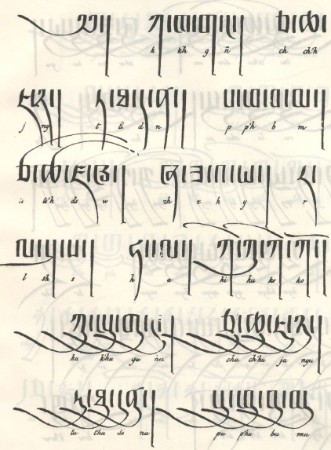 ཀ ཁ ག ང ། ཅ ཆ
k kh g ñ ch ch'h
ཇ ཉ ། ཏ ཐ ད ན ། པ ཕ བ མ །
j ny t t'h d n p p'h b m
ཙ ཚ ཛ ཝ ། ཞ ཟ འ ཡ ། ར
ts ts'h ds w zh z h y r
ལ ཤ ས ། ཧ ཨ ། ཀི ཀུ ཀེ ཀོ །
l sh s h a ki ku ke ko
ཀུ ཁུ གུ ངུ ། ཅུ ཆུ ཇུ ཉུ །
ku k'hu gu ñu chu ch'hu ju nyu
ཏུ ཐུ དུ ནུ ། པུ ཕུ བུ མུ །
tu t'hu du nu pu p'hu bu mu